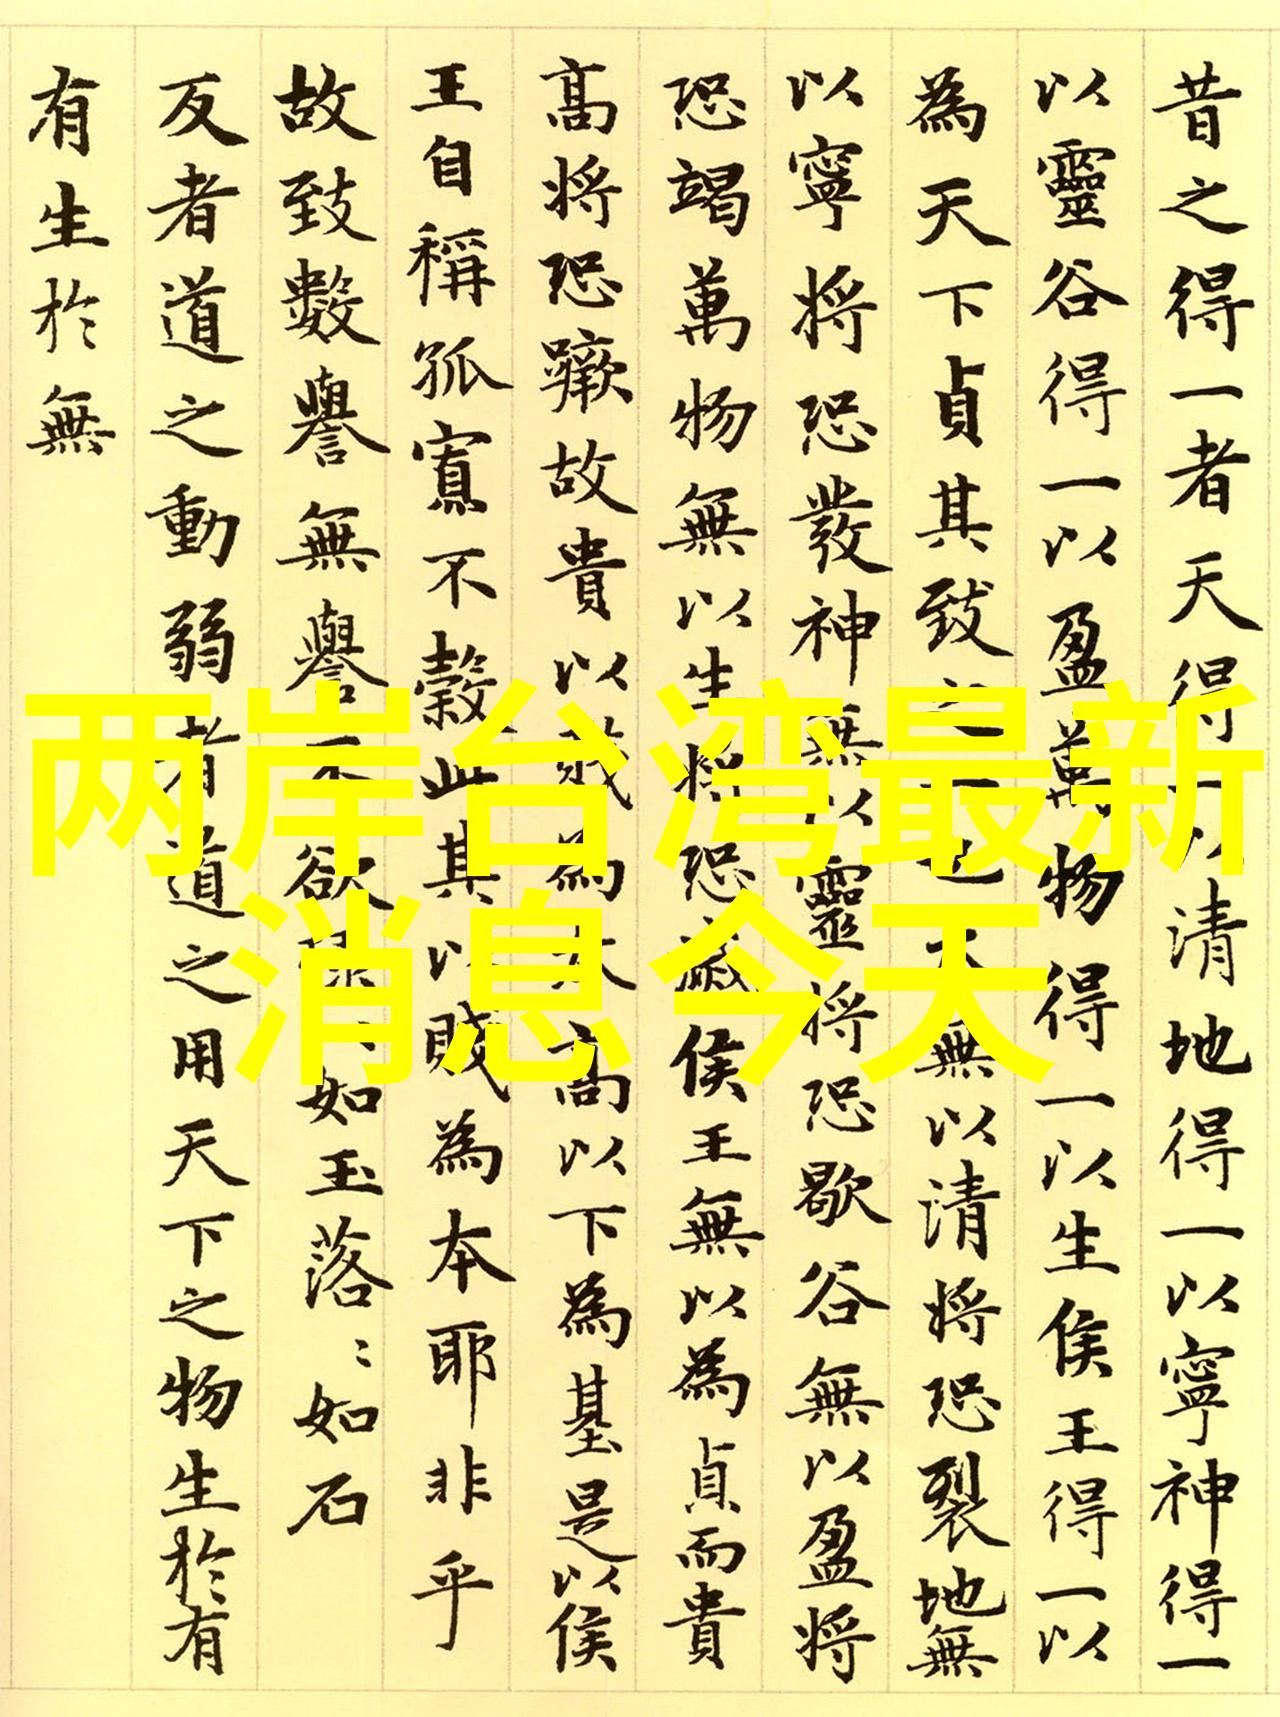 昔之得一者天得一以清地得一以寧神得一
以靈谷得一以盈萬物得一以生侯王得一以
為天下貞其致之一也天無以請將恐裂地無
以寧將恐發神無以靈將恐歇谷無以盈將
恐竭萬物無以生將恐滅侯王無以為貞而貴
高將恐蹶故貴以賤為本高以下為基是以侯
王自稱孤寡不穀此其以賤為本耶非乎
故致數譽無譽不欲琭〻如玉落〻如石
反者道之動弱者道之用天下之物生於有
有生於無
两岸台湾最新
消息今天